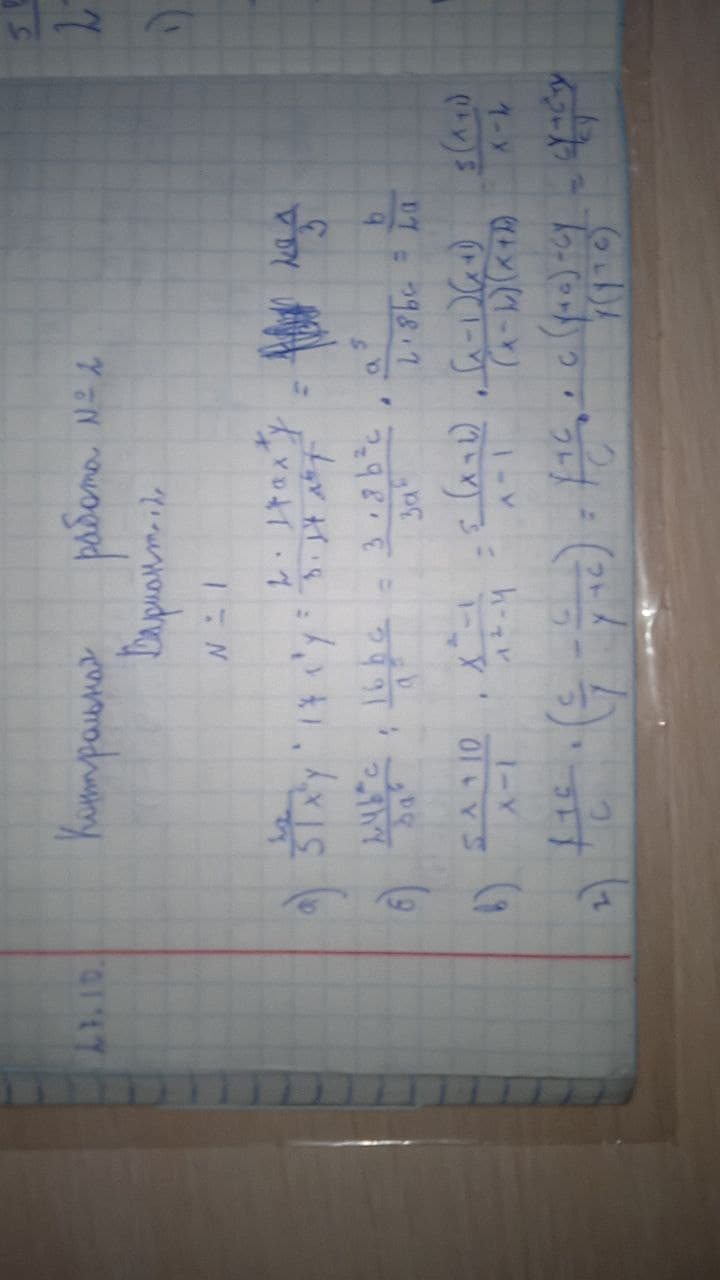 27.10.
Контрольная работа № 2
Вариант 2
№ 1
а) 2a/51x⁶y · 17x⁷y = 2·17ax⁷y/3·17x⁶y = 2ax/3
б) 24b²c/3a⁶ : 16bc/a⁵ = 3·8b²c/3a⁶ · a⁵/2·8bc = b/2a
в) 5x+10/x-1 · x²-1/x²-4 = 5(x+2)/x-1 · (x-1)(x+1)/(x-2)(x+2) 5(x+1)/x-2
г) y+c/c · (c/y - c/y+c) = y+c/c · c(y+c)-cy/y(y+c) =